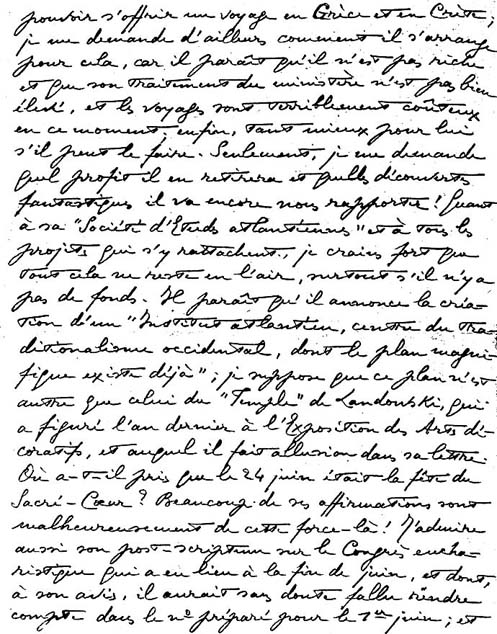 pouvoir s'offrir un voyage en Grèce et en Crète ;
je me demande d'ailleurs comment il s'arrange
pour cela, car il paraît qu'il n'est pas riche
et que son traitement du ministère n'est pas bien
élevé, et les voyages sont terriblement coûteux
en ce moment ; enfin, tant mieux pour lui
s'il peut le faire. Seulement, je me demande
quel profit il en retirera et quelles découvertes
fantastiques il va encore nous rapporter ! Quant
à sa "Société d'Etudes atlantéennes" et à tous les
projets qui s'y rattachent, je crains fort que
tout cela ne reste en l'air, surtout s'il n'y a
pas de fonds. Il paraît qu'il annonce la créa-
tion d'un "Institut atlantéen, centre du tra-
ditionalisme occidental, dont le plan magni-
fique existe déjà" ; je suppose que ce plan n'est
autre que celui du "Temple" de Landowski, qui
a figuré l'an dernier à l'Exposition des Arts dé-
coratifs, et auquel il fait allusion dans sa lettre.
Où a-t-il pris que le 24 juin était la fête du
Sacré-Cœur ? Beaucoup de ses affirmations sont
malheureusement de cette force-là ! J'admire
aussi son post-scriptum sur le Congrès eucha-
ristique qui a eu lieu à la fin de juin, et dont,
à son avis, il aurait sans doute fallu rendre
compte dans le nº préparé pour le 1er juin ; et